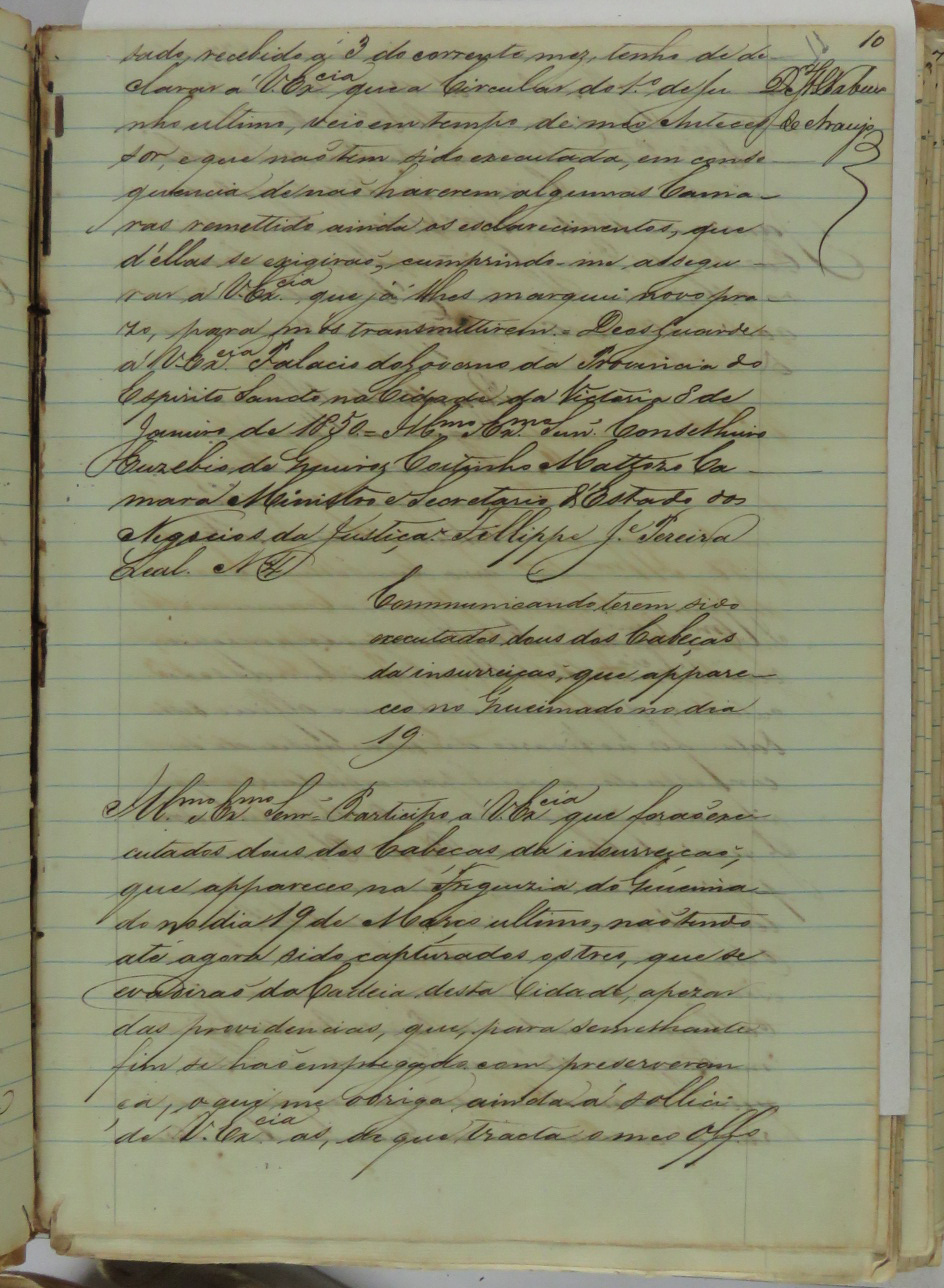 10
sado, recebido á 3 do corrente mez, tenho de de-
clarar á V. Excia que a Circular do 1.º de Ju
nho ultimo, veio em tempo de meo Anteces
sor, e que não tem sido executada, em conse-
quencia de não haverem algumas Cama-
ras remettido ainda os esclarecimentos, que
d'ellas se exigirão, cumprindo-me assegu-
rar á V. Excia que já lhes marquei novo pra-
zo, para m'os transmittirem = Deos Guarde
á V. Excia Palacio do Governo da Provincia do
Espirito Sancto na Cidade da Victoria 8 de
Janeiro de 1850 = Illmo Exmo Senr. Conselheiro
Euzebio de Queiroz Coitinho Mattozo Ca
mara Ministro e Secretario d'Estado dos
Negocios da Justiça = Fellippe J.e Pereira
Leal.
de Araujo
Communicando terem sido
executados dous dos Cabeças
da insurreição, que appare-
ceo no Queimado no dia
19.
Illmo Exmo Senr = Participo á V. Excia que forão exe-
cutados dous dos Cabeças da insurreição,
que appareceo na Freguezia do Queima-
do no dia 19 de Março ultimo, não tendo
até agora sido capturados os tres, que se
evadirão da Cadeia desta Cidade, apezar
das providencias, que, para semelhante
fim se hão empregado com preserveran
ça, o que me obriga ainda á sollici-
de V. Excia as, de que tracta o meo Offo